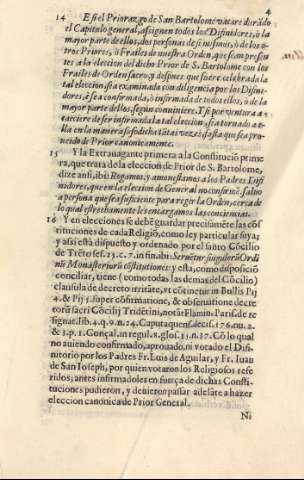 4
14 E si el Priorazgo de San Bartolome vacare durãdo
el Capitulo general, assignen todos los Difinidores, ò la
mayor parte dellos, dos personas de si mismos, ò de los o-
tros Priores, ò Frailes de nuestra Orden, que sean presen-
tes a la eleccion del dicho Prior de S. Bartolome con los
Frailes de Orden sacro, y despues que fuere celebrada la
tal eleccion, sea examinada con diligencia por los Difini-
dores, è sea confirmada, ò infirmada de todos ellos, ò de la
mayor parte dellos, segun conviniere. Y si por ventura a-
caeciere de ser infirmada la tal eleccion, sea tornado a e-
lla en la manera susodicha tãtas vezes, fasta que sea pro-
ueido de Prior canonicamente.
15 Y la Extrauagante primera a la Constitució prime
ra, que trata de la eleccion de Prior de S. Bartolome,
dize ansi, ibi: Rogamos, y amonestamos a los Padres Difi-
nidores, que en la eleccion de General no confirmẽ, saluo
a persona que sea suficiente para regir la Orden, cerca de
lo qual estrechamente les encargamos las conciencias.
16 Y en elecciones se debẽ guardar precissamẽte las cõs
tituciones de cada Religiõ, como ley particular suya;
y assi està dispuesto y ordenado por el santo Cõcilio
de Trẽto sess. 25. c. 7. in fin. ibi: Seruẽtur singulorũ Ordi
nũ & Monasteriorũ cõstitutiones: y esta, como disposiciõ
conciliar, tiene (como todas las demas del Cõcilio)
clausula de decreto irritãte, vt cõtinetur in Bullis Pij
4. & Pij 5. super cõfirmatione, & obseruatione decre
torũ sacri Cõcilij Tridẽtini, notãt Flamin. Paris. de re
signat. lib. 4. q. 9. n. 24. Caputaquens. decis. 176. nu. 2.
& 3. p. 1. Gonçal. in regul. 8. glos. 33. n. 37. Cõ lo qual
no auiendo confirmado, aprouado, ni votado el Difi-
nitorio por los Padres Fr. Luis de Aguilar, y Fr. Iuan
de San Ioseph, por quien votaron los Religiosos refe
ridos; antes infirmadoles en fuerça de dichas Consti-
tuciones pudieron, y deuieron passar adelãte a hazer
eleccion canonica de Prior General.
Ni